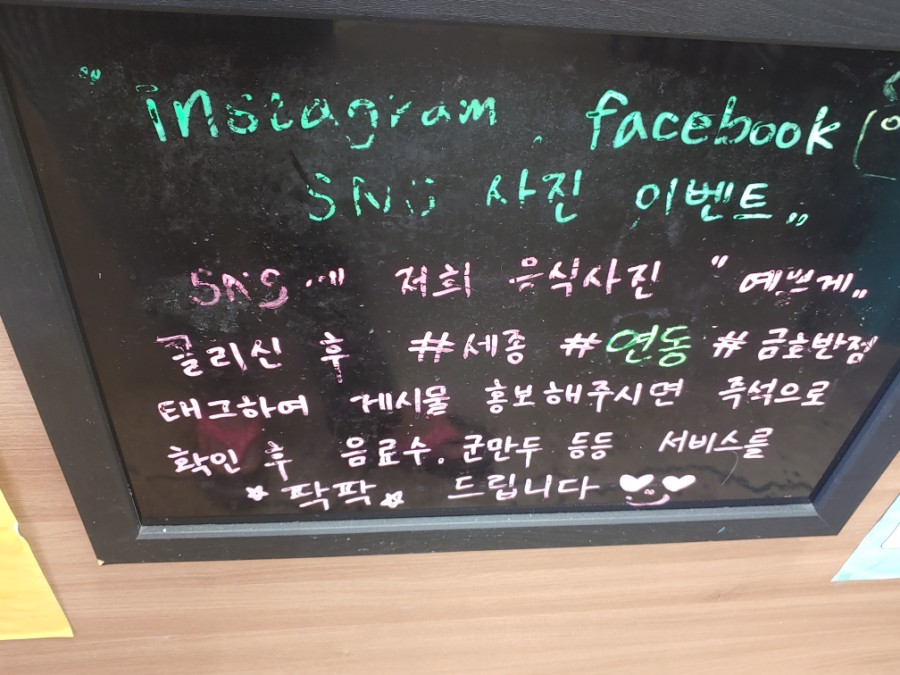 " instagram, facebook
SNS 사진 이벤트 "
SNS에 저희 음식사진 " 예쁘게 "
올리신 후 #세종 #연동 #금호반점
태그하여 게시물 홍보해주시면 즉석으로
확인 후 음료수. 군만두 등등 서비스를
☆팍팍☆ 드립니다